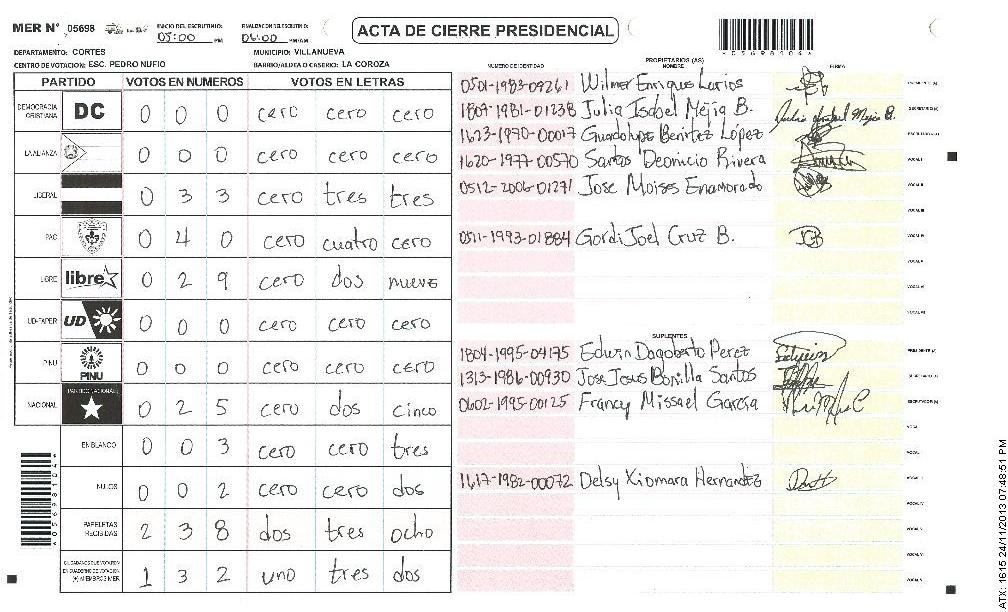 MER N° 05698
INICIO DEL ESCRUTINIO: 05:00 PM
FINALIZACION DEL ESCRUTINIO: 06:00 PM/AM
ACTA DE CIERRE PRESIDENCIAL
*05698104*
DEPARTAMENTO: CORTES
MUNICIPIO: VILLANUEVA
CENTRO DE VOTACION: ESC. PEDRO NUFIO
BARRIO/ALDEA O CASERIO: LA COROZA
PARTIDO VOTOS EN NUMEROS VOTOS EN LETRAS
DEMOCRACIA CRISTIANA DC 0 0 0 cero cero cero
LA ALIANZA 0 0 0 cero cero cero
LIBERAL 0 3 3 cero tres tres
PAC 0 4 0 cero cuatro cero
LIBRE libre 0 2 9 cero dos nueve
UD-FAPER UD 0 0 0 cero cero cero
PINU PINU 0 0 0 cero cero cero
NACIONAL PARTIDO NACIONAL 0 2 5 cero dos cinco
EN BLANCO 0 0 3 cero cero tres
NULOS 0 0 2 cero cero dos
PAPELETAS RECIBIDAS 2 3 8 dos tres ocho
CIUDADANOS QUE VOTARON EN CUADERNO DE VOTACION (+) MIEMBROS MER 1 3 2 uno tres dos
*05698104*
PROPIETARIOS (AS)
NUMERO DE IDENTIDAD NOMBRE FIRMA
0501-1983-09261 Wilmer Enrique Larios PRESIDENTE (A)
1809-1981-01238 Julia Isabel Mejia B. Julia Isabel Mejia B. SECRETARIO (A)
1623-1970-00017 Guadalupe Benitez López ESCRUTADOR (A)
1620-1977-00570 Santos Deonicio Rivera VOCAL I
0512-2006-01271 Jose Moises Enamorado VOCAL II
VOCAL III
0511-1993-01884 Gordi Joel Cruz B. JCB VOCAL IV
VOCAL V
VOCAL VI
VOCAL VII
SUPLENTES
1804-1995-04175 Edwin Dagoberto Perez PRESIDENTE (A)
1313-1986-00930 Jose Jesus Bonilla Santos SECRETARIO (A)
0602-1995-00125 Francy Missael Garcia ESCRUTADOR (A)
VOCAL
VOCAL
1617-1982-00072 Delsy Xiomara Hernandez
VOCAL IV
VOCAL V
VOCAL VI
VOCAL V
ATX: 1615 24/11/2013 07:48:51 PM